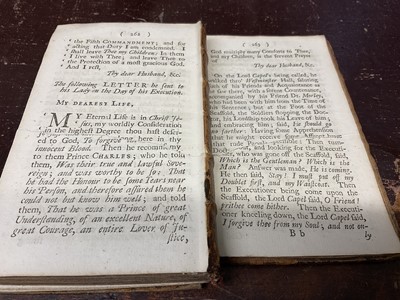 ( 262 )
the Fifth COMMANDMENT; and for
asking that Duty I am condemned. I
shall leave Thee my Children; in them
I live, and leave Thee to
the Protection of a most gracious God.
And I rest
Thy dear Husband, &c.
The following LETTER he sent to
his Lady on the Day of his Execution.
MY DEAREST LIFE,
MY Eternal Life is in Christ Je-
sus; my worldly Consideration
in the highest Degree thou hast deser-
ved
to them Prince CHARLES; who he told
them, Was their true and Lawful Sove-
reign; and was worthy to be so: That
he had the Honour to be some Years near
his Person, and therefore assured them he
could not but know him well; and told
them, That he was a Prince of great
Understanding, of an excellent Nature, of
great Courage, an entire Lover of Ju-
stice,
( 263 )
God multiply many Comforts to Thee,
and my Children, is the fervent Prayer
of
Thy dear Husband, &c.
On the Lord Capel's being called, he
walked thro' Westminster Hall, saluting
such of his Friends and Acquaintance as
he saw there, with a serene Countenance,
accompanied by his Friend Dr. Morley,
who had been with him from the Time of
his Sentence; but at the Foot of the
Scaffold, the Soldiers stopping the Doc-
tor, his Lordship took his Leave of him;
and embracing him, said, he should go
no farther: Having some Apprehension
that he might receive some
and looking for the Executi-
oner, who was gone off the Scaffold, said,
Which is the Gentleman? Which is the
Man? Answer was made, He is coming.
He then said, Stay! I must put off my
Doublet first, and my Waistcoat. Then
the Executioner being come upon the
Scaffold, the Lord Capel said, O Friend!
prithee come hither. Then the Executi-
oner kneeling down, the Lord Capel said,
I forgive thee from my Soul, and not on-
B b
ly